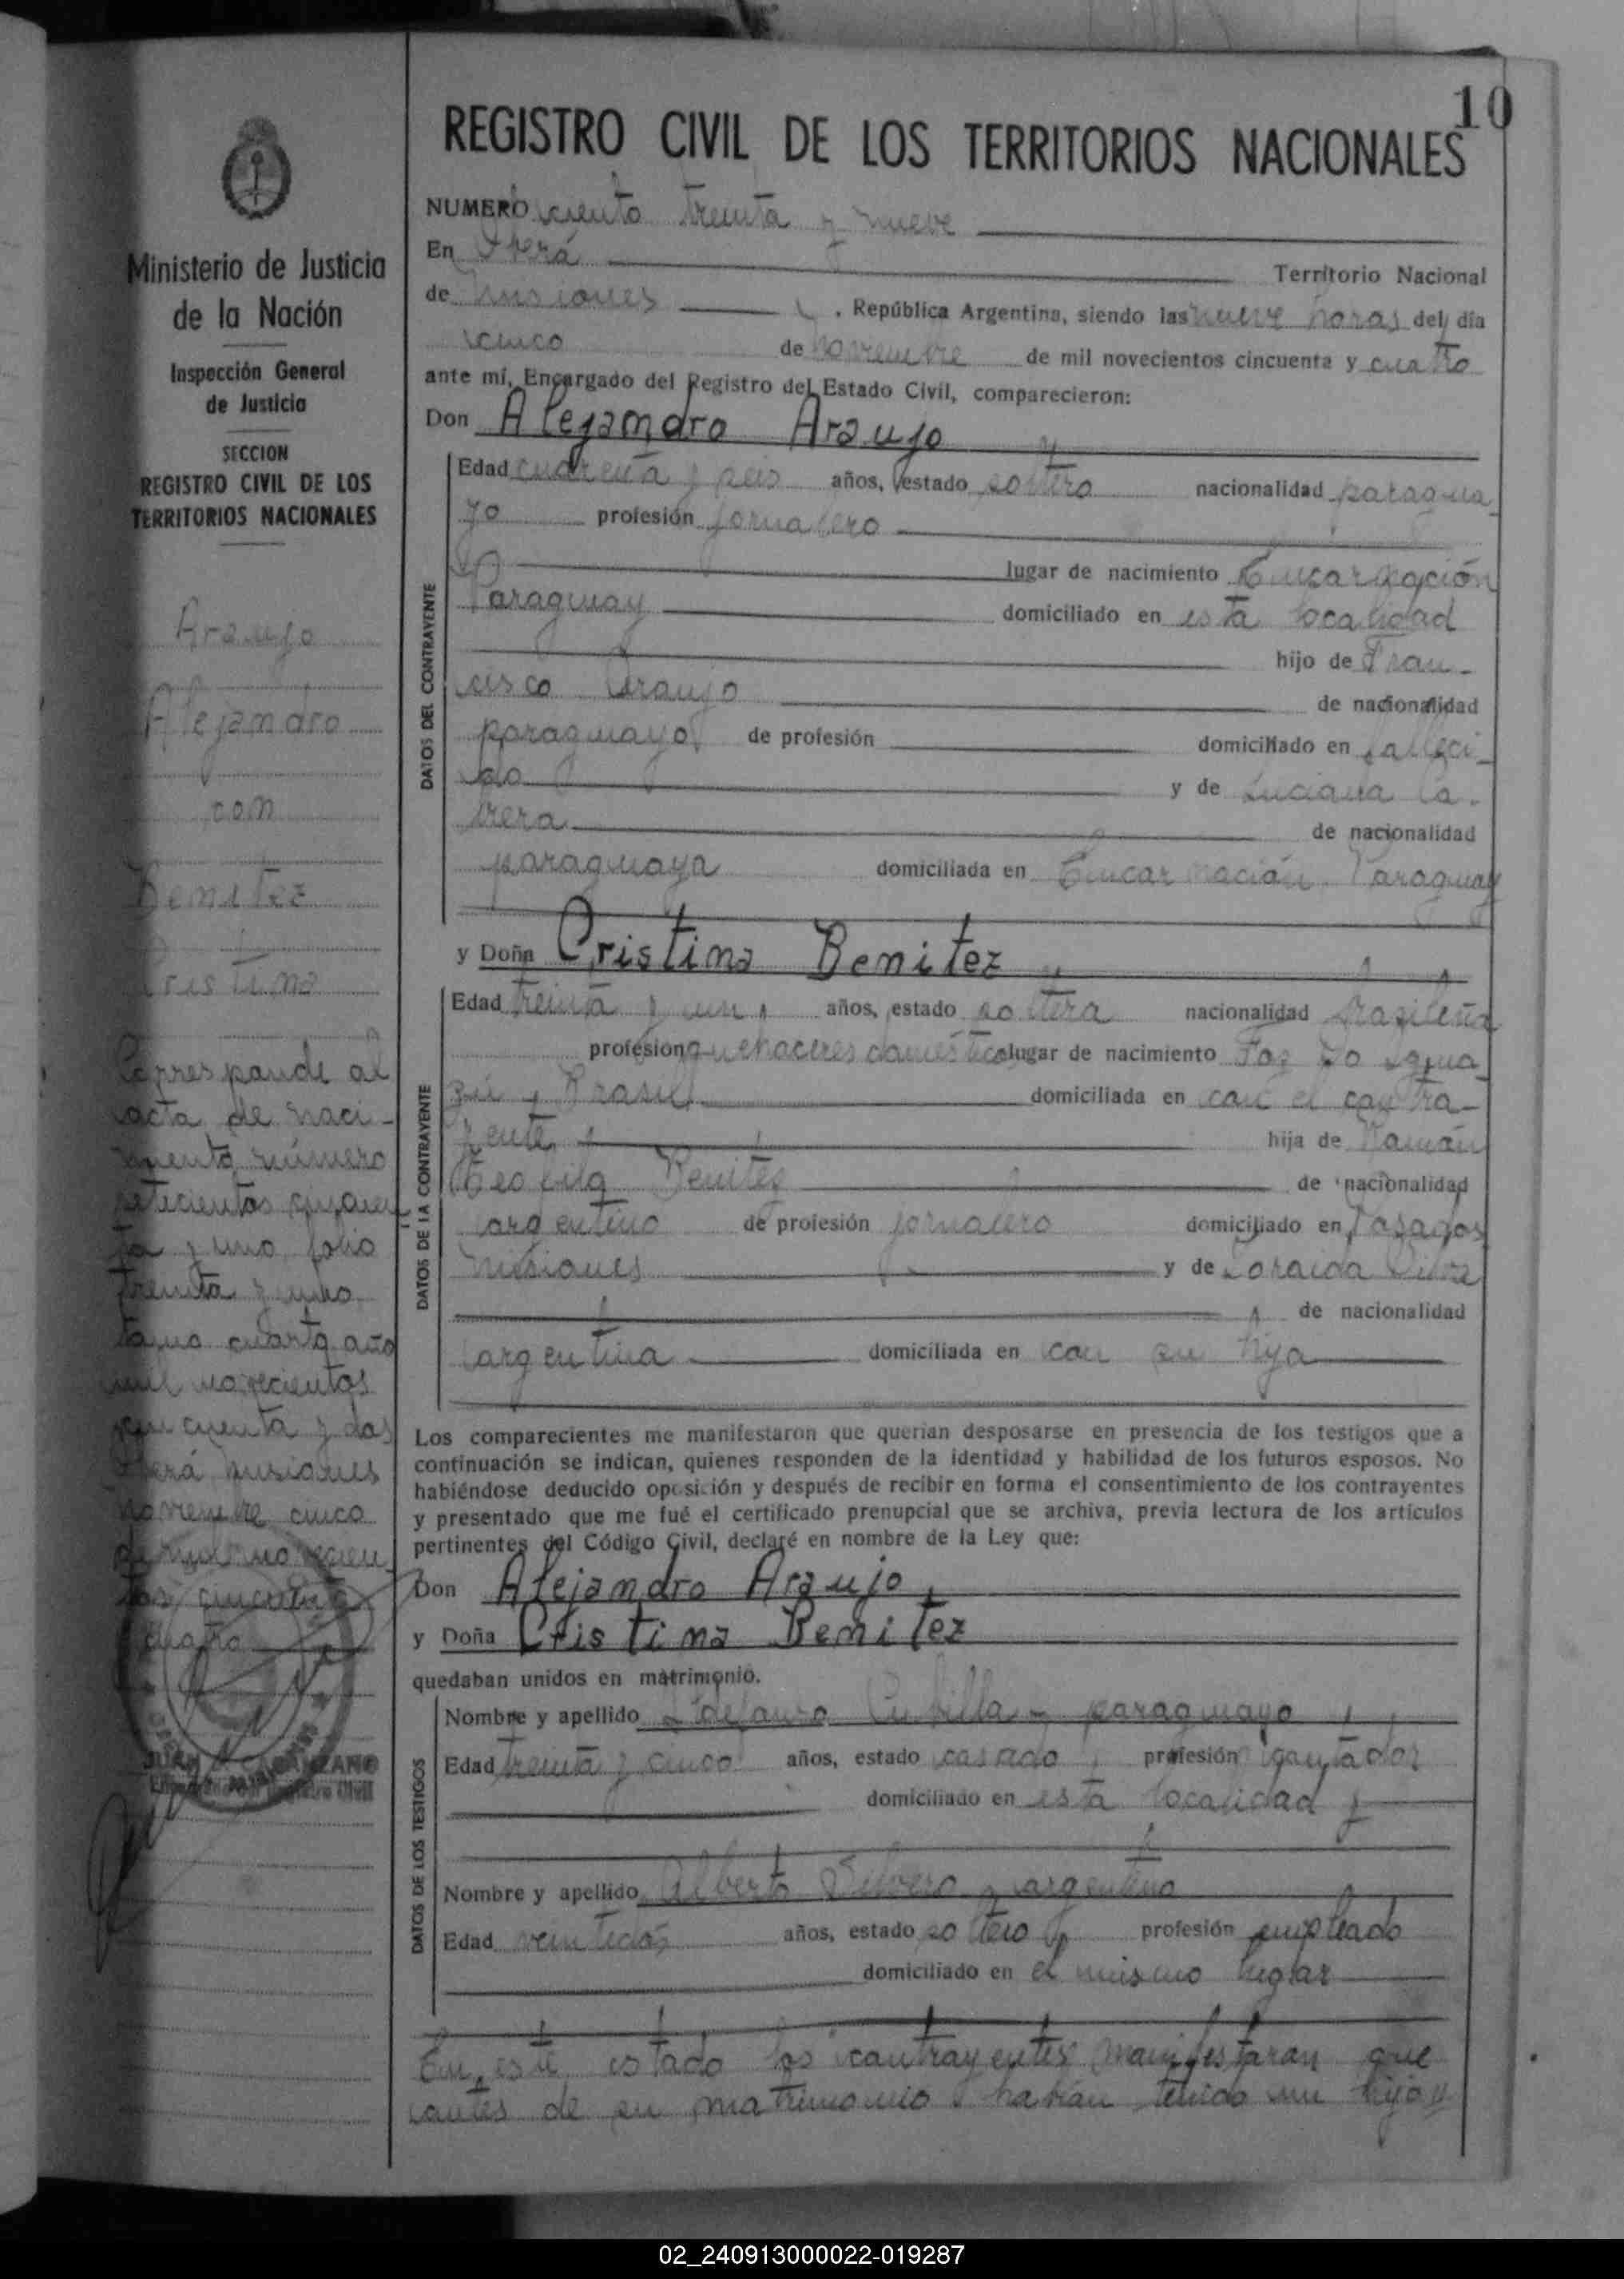 10
REGISTRO CIVIL DE LOS TERRITORIOS NACIONALES
Ministerio de Justicia
de la Nación
Inspección General
de Justicia
SECCION
REGISTRO CIVIL DE LOS
TERRITORIOS NACIONALES
Araujo
Alejandro
con
Benitez
Cristina
Corresponde al
acta de naci-
miento número
setecientos cincuen
ta y uno folio
treinta y uno
tomo cuarto año
mil novecientos
cincuenta y dos
Oberá Misiones
noviembre cinco
de mil novecien
tos cincuenta
cuatro
JUAN
NUMERO ciento treinta y nueve
En Oberá Territorio Nacional
de Misiones, República Argentina, siendo las nueve horas del día
cinco de noviembre de mil novecientos cincuenta y cuatro
ante mí, Encargado del Registro del Estado Civil, comparecieron:
Don Alejandro Araujo
DATOS DEL CONTRAYENTE
Edad cuarenta y seis años, estado soltero nacionalidad paragua
yo profesión jornalero
lugar de nacimiento Encarnación
Paraguay domiciliado en esta localidad
hijo de Fran-
cisco Araujo de nacionalidad
paraguayo de profesión domiciliado en falleci-
do y de Luciana Ca-
rera de nacionalidad
paraguaya domiciliada en Encarnación Paraguay
y Doña Cristina Benitez
DATOS DE LA CONTRAYENTE
Edad treinta y un años, estado soltera nacionalidad brasileña
profesion quehaceres domésticos lugar de nacimiento Foz do Igua
zú, Brasil domiciliada en con el contra-
yente hija de Ramón
Teofilo Benitez de nacionalidad
argentino de profesión jornalero domiciliado en Posadas
Misiones y de Zoraida
de nacionalidad
argentina domiciliada en con su hija
Los comparecientes me manifestaron que querían desposarse en presencia de los testigos que a
continuación se indican, quienes responden de la identidad y habilidad de los futuros esposos. No
habiéndose deducido oposición y después de recibir en forma el consentimiento de los contrayentes
y presentado que me fué el certificado prenupcial que se archiva, previa lectura de los artículos
pertinentes del Código Civil, declaré en nombre de la Ley que:
Don Alejandro Araujo
y Doña Cristina Benitez
quedaban unidos en matrimonio.
DATOS DE LOS TESTIGOS
Nombre y apellido Ildefonso Cubilla - paraguayo
Edad treinta y cinco años, estado casado profesión contador
domiciliado en esta localidad y
Nombre y apellido Alberto Silvero, argentino
Edad veintidos años, estado soltero profesión empleado
domiciliado en el mismo lugar
En este estado los contrayentes manifestaron que
antes de su matrimonio habían tenido un hijo
02_240913000022-019287